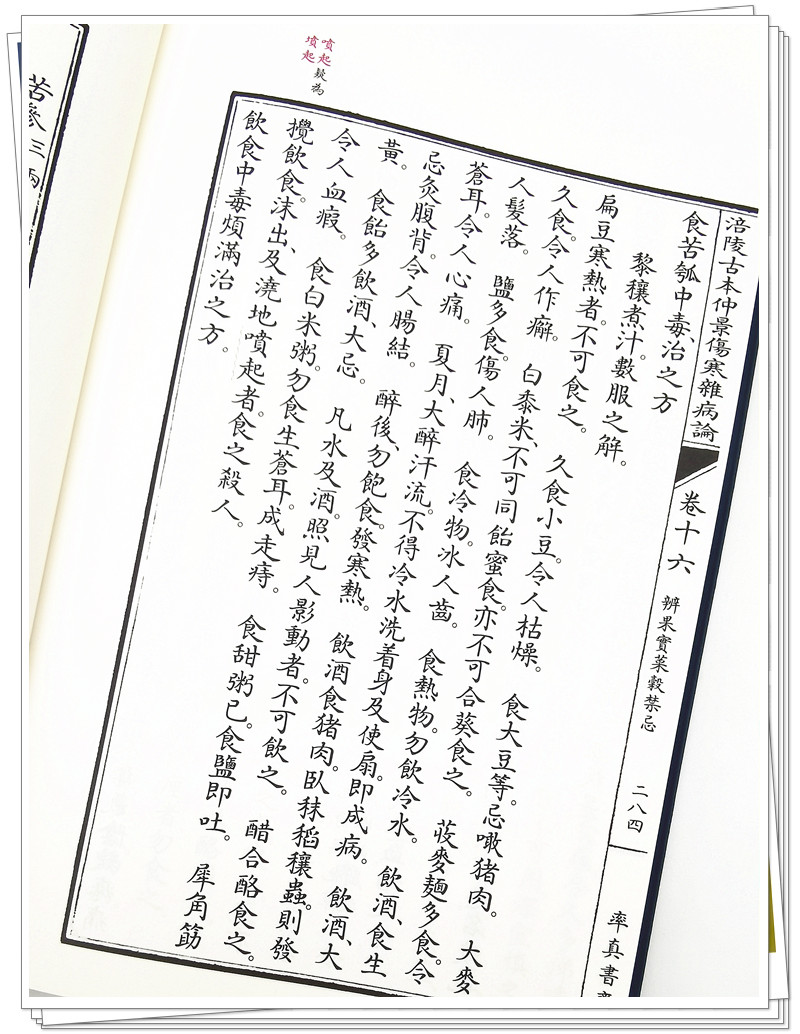 涪陵古本仲景傷寒雜病論
卷十六
辨果實菜穀禁忌
二八四
率真書
食苦瓠中毒、治之方
黎穰煮汁。數服之解。
扁豆寒熱者。不可食之。 久食小豆。令人枯燥。 食大豆等。忌噉猪肉。 大麥
久食。令人作癬。 白黍米、不可同飴蜜食。亦不可合葵食之。 荍麥麵多食。令
人髮落。 鹽多食。傷人肺。 食冷物。冰人齒。 食熱物。勿飲冷水。 飲酒、食生
蒼耳。令人心痛。 夏月、大醉汗流。不得冷水洗着身及使扇。即成病。 飲酒、大
忌灸腹背。令人腸結。 醉後、勿飽食。發寒熱。 飲酒食猪肉。臥秫稻穰蟲。則發
黃。 食飴多飲酒、大忌。 凡水及酒。照見人影動者。不可飲之。 醋合酪食之。
令人血瘕。 食白米粥。勿食生蒼耳。成走痔。 食甜粥已。食鹽即吐。 犀角筯
攪飲食。沫出、及澆地噴起者。食之殺人。
飲食中毒煩滿治之方。
噴起疑為
墳起
苦參三兩